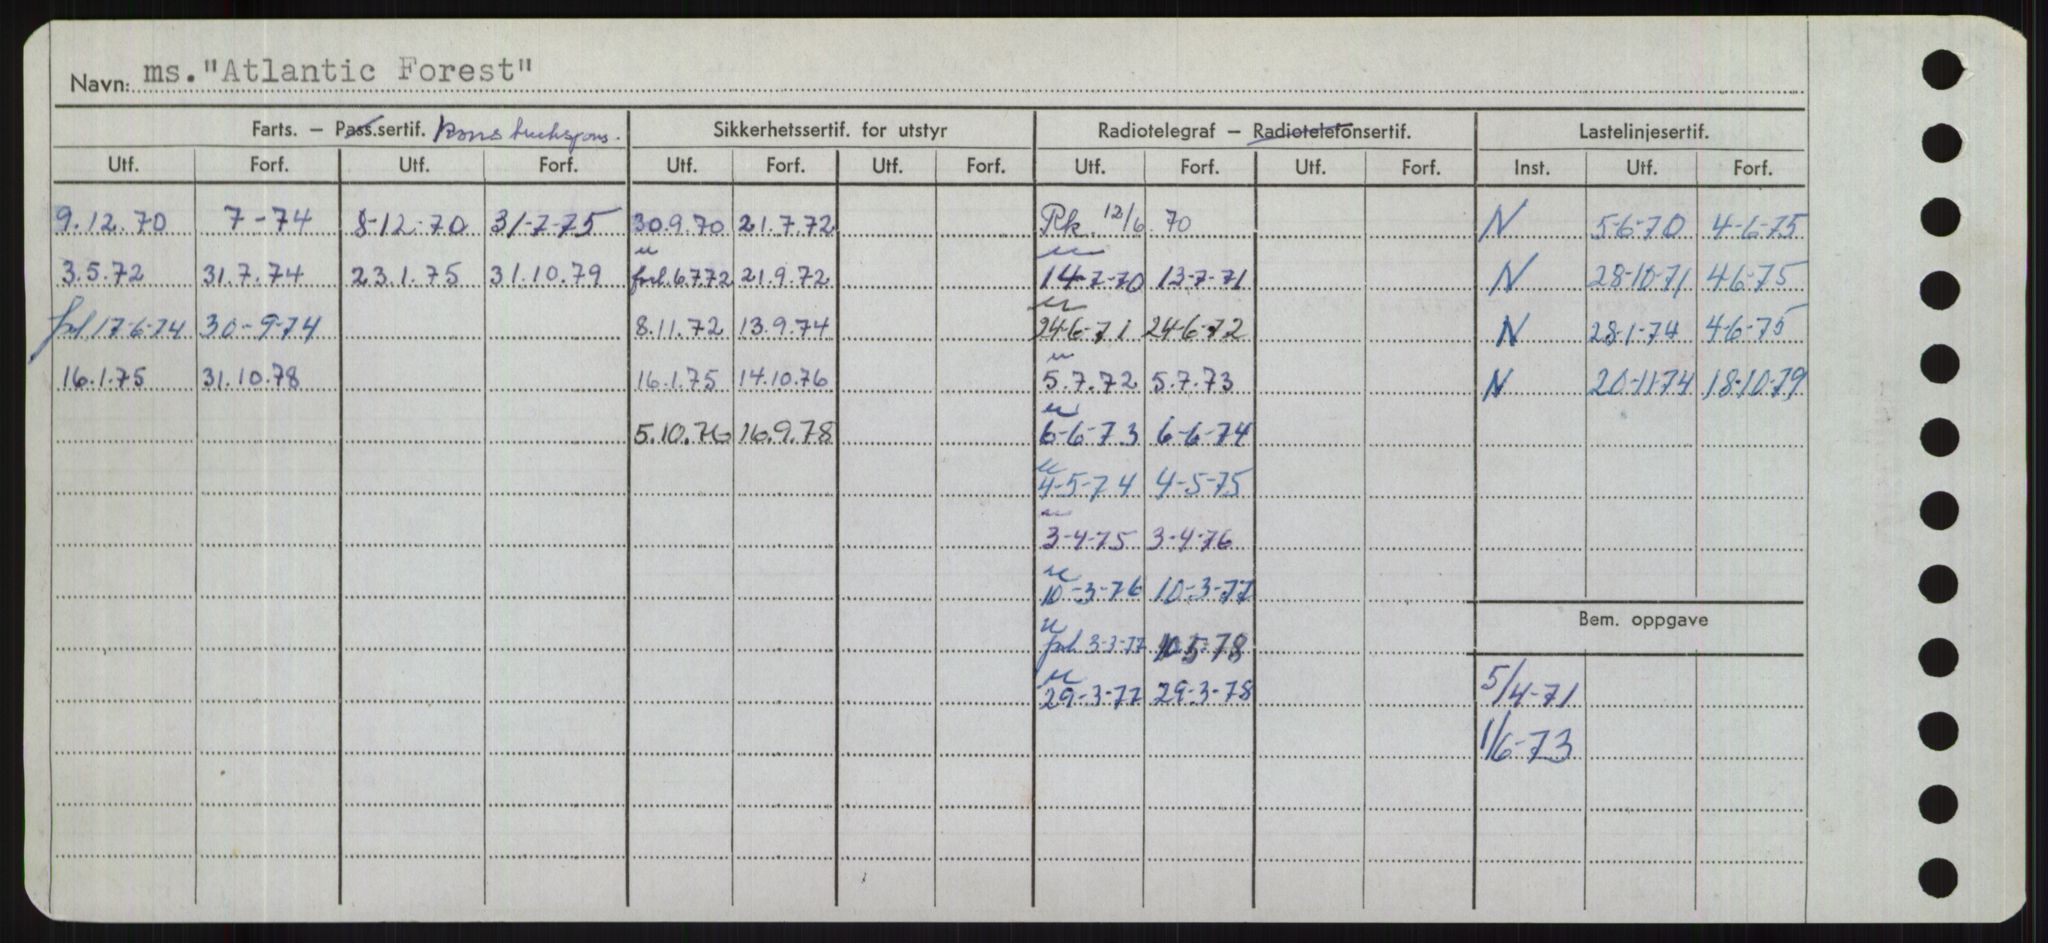 Navn: ms. "Atlantic Forest"
Farts. – Pass.sertif. Konstruksjons. Sikkerhetssertif. for utstyr Radiotelegraf – Radiotelefonsertif. Lastelinjesertif.
Utf. Forf. Utf. Forf. Utf. Forf. Utf. Forf. Utf. Forf. Utf. Forf. Inst. Utf. Forf.
9.12.70 7-74 8-12-70 31-7-75 30.9.70 21.7.72 Rk. 12/6.70 N 5-6-70 4-6-75
3.5.72 31.7.74 23.1.75 31.10.79 forl.6.7.72 21.9.72 14-7-70 13-7-71 N 28-10-71 4-6-75
forl 17-6-74 30-9-74 8.11.72 13.9.74 24-6-71 24-6-72 N 28-1-74 4-6-75
16.1.75 31.10.78 16.1.75 14.10.76 5.7.72 5.7.73 N 20-11-74 18-10-79
5.10.76 16.9.78 6-6-73 6-6-74
4-5-74 4-5-75
3-4-75 3-4-76
10-3-76 10-3-77
Bem. oppgave
forl 3-3-77 10.5-78
29-3-77 29-3-78 5/4-71
1/6-73